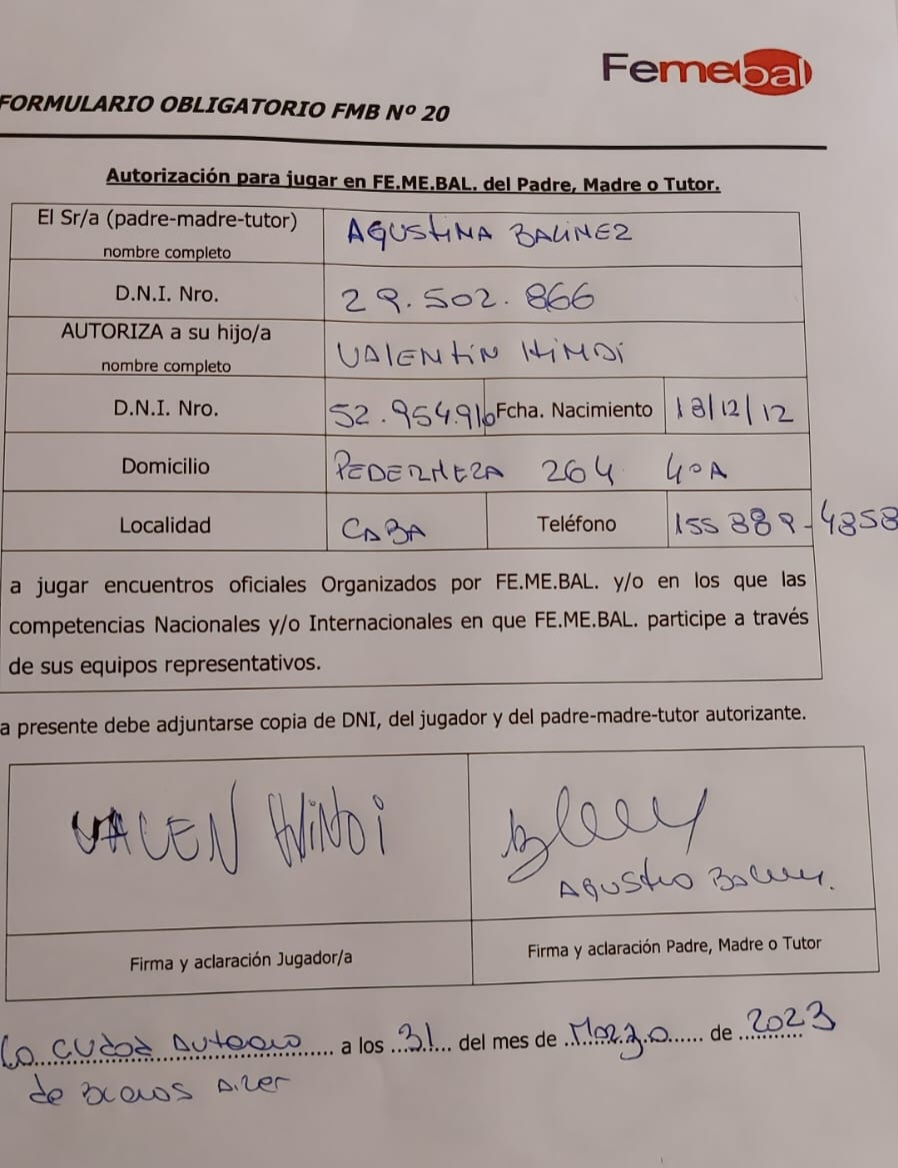 Femebal
FORMULARIO OBLIGATORIO FMB Nº 20
Autorización para jugar en FE.ME.BAL. del Padre, Madre o Tutor.
El Sr/a (padre-madre-tutor) AGUSTINA BALINEZ
nombre completo
D.N.I. Nro. 29.502.866
AUTORIZA a su hijo/a VALENTÍN HINDI
nombre completo
D.N.I. Nro. 52.954.916 Fcha. Nacimiento 18/12/12
Domicilio PEDERNERA 264 4ºA
Localidad CABA Teléfono 155 889-4858
a jugar encuentros oficiales Organizados por FE.ME.BAL. y/o en los que las
competencias Nacionales y/o Internacionales en que FE.ME.BAL. participe a través
de sus equipos representativos.
a presente debe adjuntarse copia de DNI, del jugador y del padre-madre-tutor autorizante.
VALEN HINDI
Firma y aclaración Jugador/a
Firma y aclaración Padre, Madre o Tutor
a los 31 del mes de Marzo de 2023
de Buenos Aires